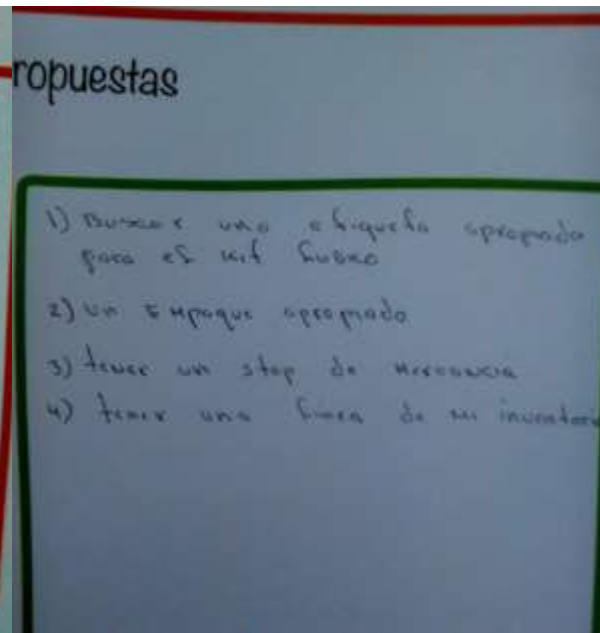 ropuestas
1) Buscar una etiqueta apropiada
para el kit
2) un Empaque apropiado
3) tener un stop de mercancia
4) tener una linea de mi inventario